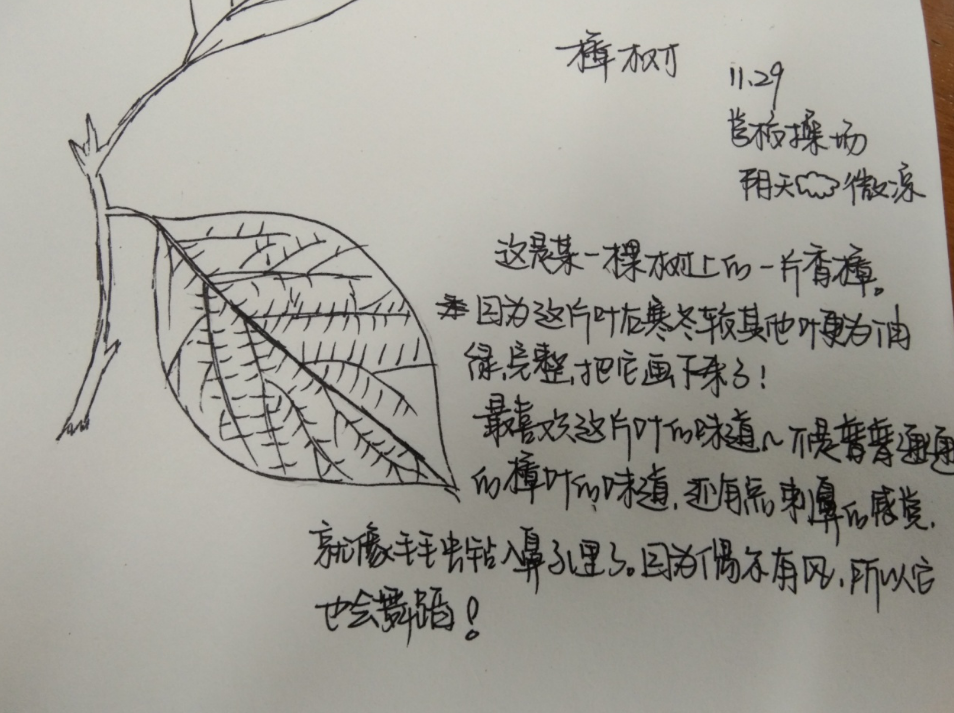 樟树
11.29
学校操场
阴天 微凉
这是某一棵树上的一片香樟。
因为这片叶在寒冬较其他叶更为油
绿,完整,把它画下来了!
最喜欢这片叶的味道~不是普普通通
的樟叶的味道,还有点刺鼻的感觉,
就像毛毛虫钻入鼻子里了。因为偶尔有风,所以它
也会舞蹈!